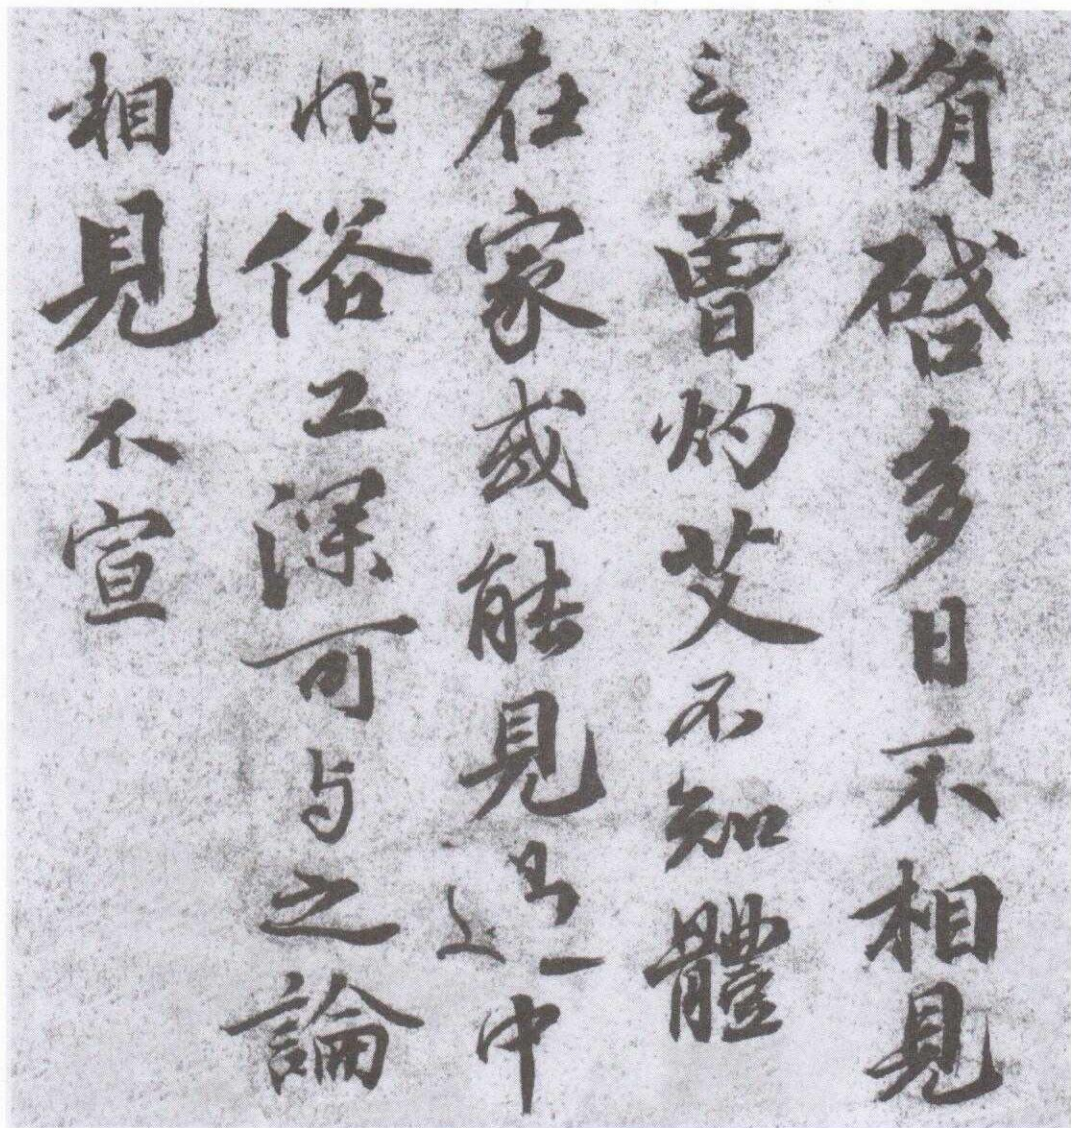 脩啓多日不相見
言曾灼艾不知體
在家或能見過中
非俗工深可与之論
相見不宣